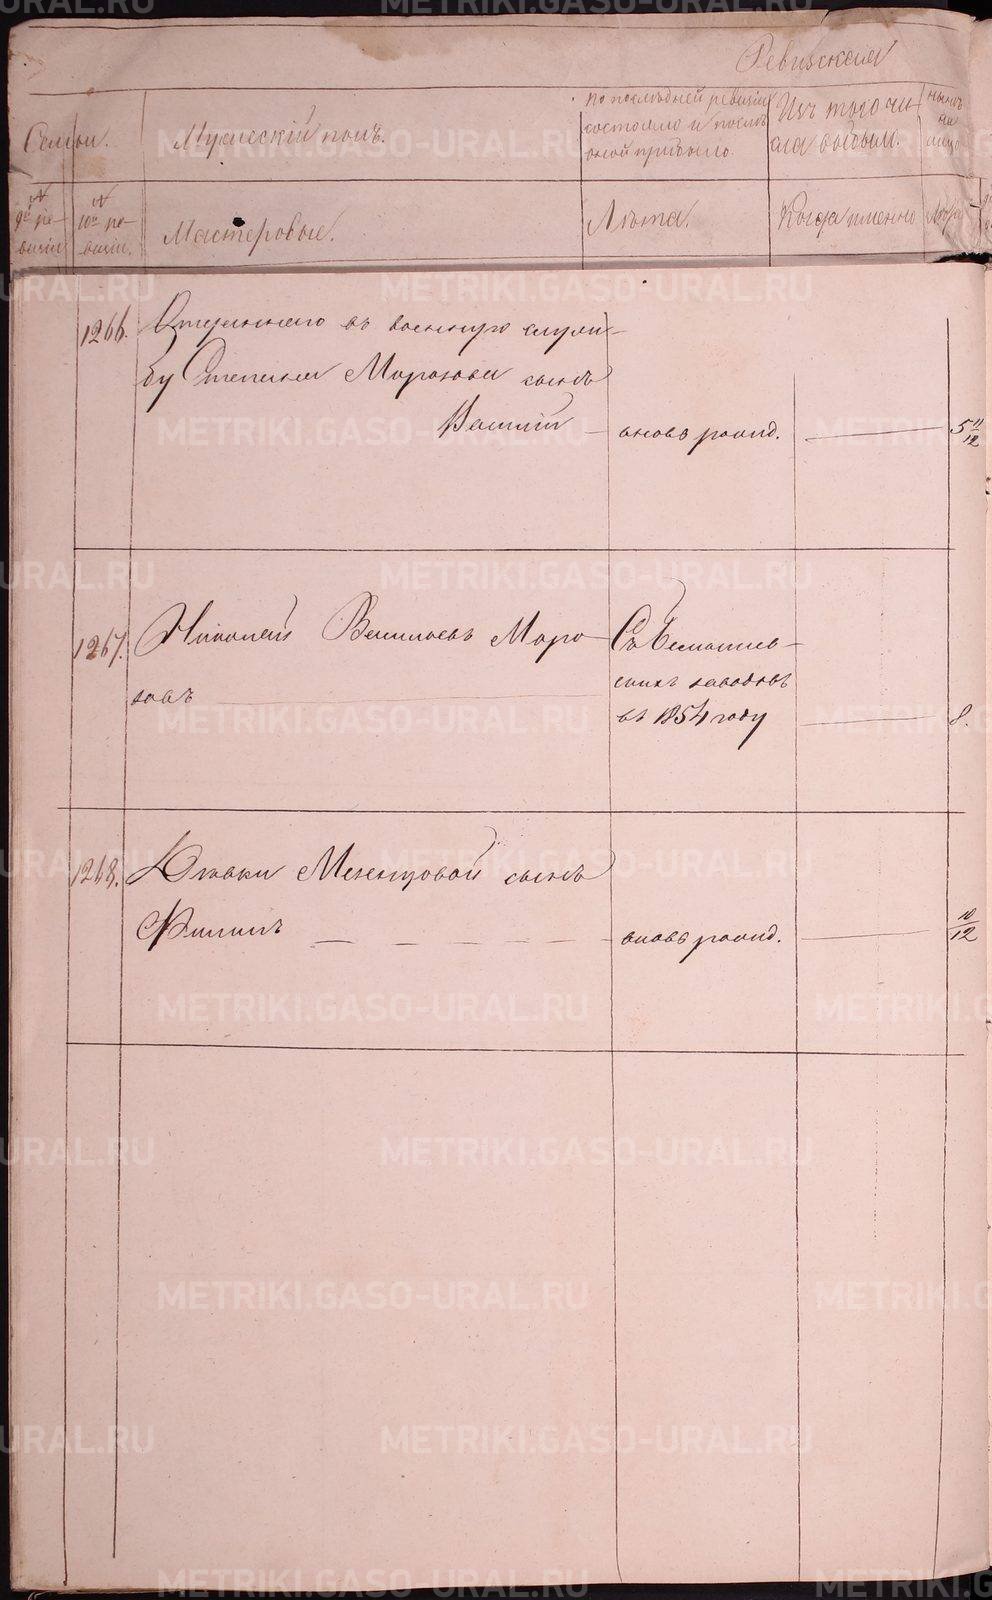 Ревизская
Семьи.
Мужескій полъ.
по последней ревизіи
состояло и после
оной прибыло
Изъ того чи-
сла выбыли.
ныне
на
лицо
№
9й ре-
визіи
№
10й ре-
визіи.
Мастеровые.
Лѣта.
Когда именно
Лѣта
1266. Отданнаго въ военную служ-
бу Степана Морозова сынъ
Василій вновь рожд. 5 11/12
1267. Николай Васильевъ Моро-
зовъ
Съ
скихъ заводовъ
въ 1854 году 8.
1268. сынъ
Филипъ вновь рожд. 10/12
METRIKI.GASO-URAL.RU